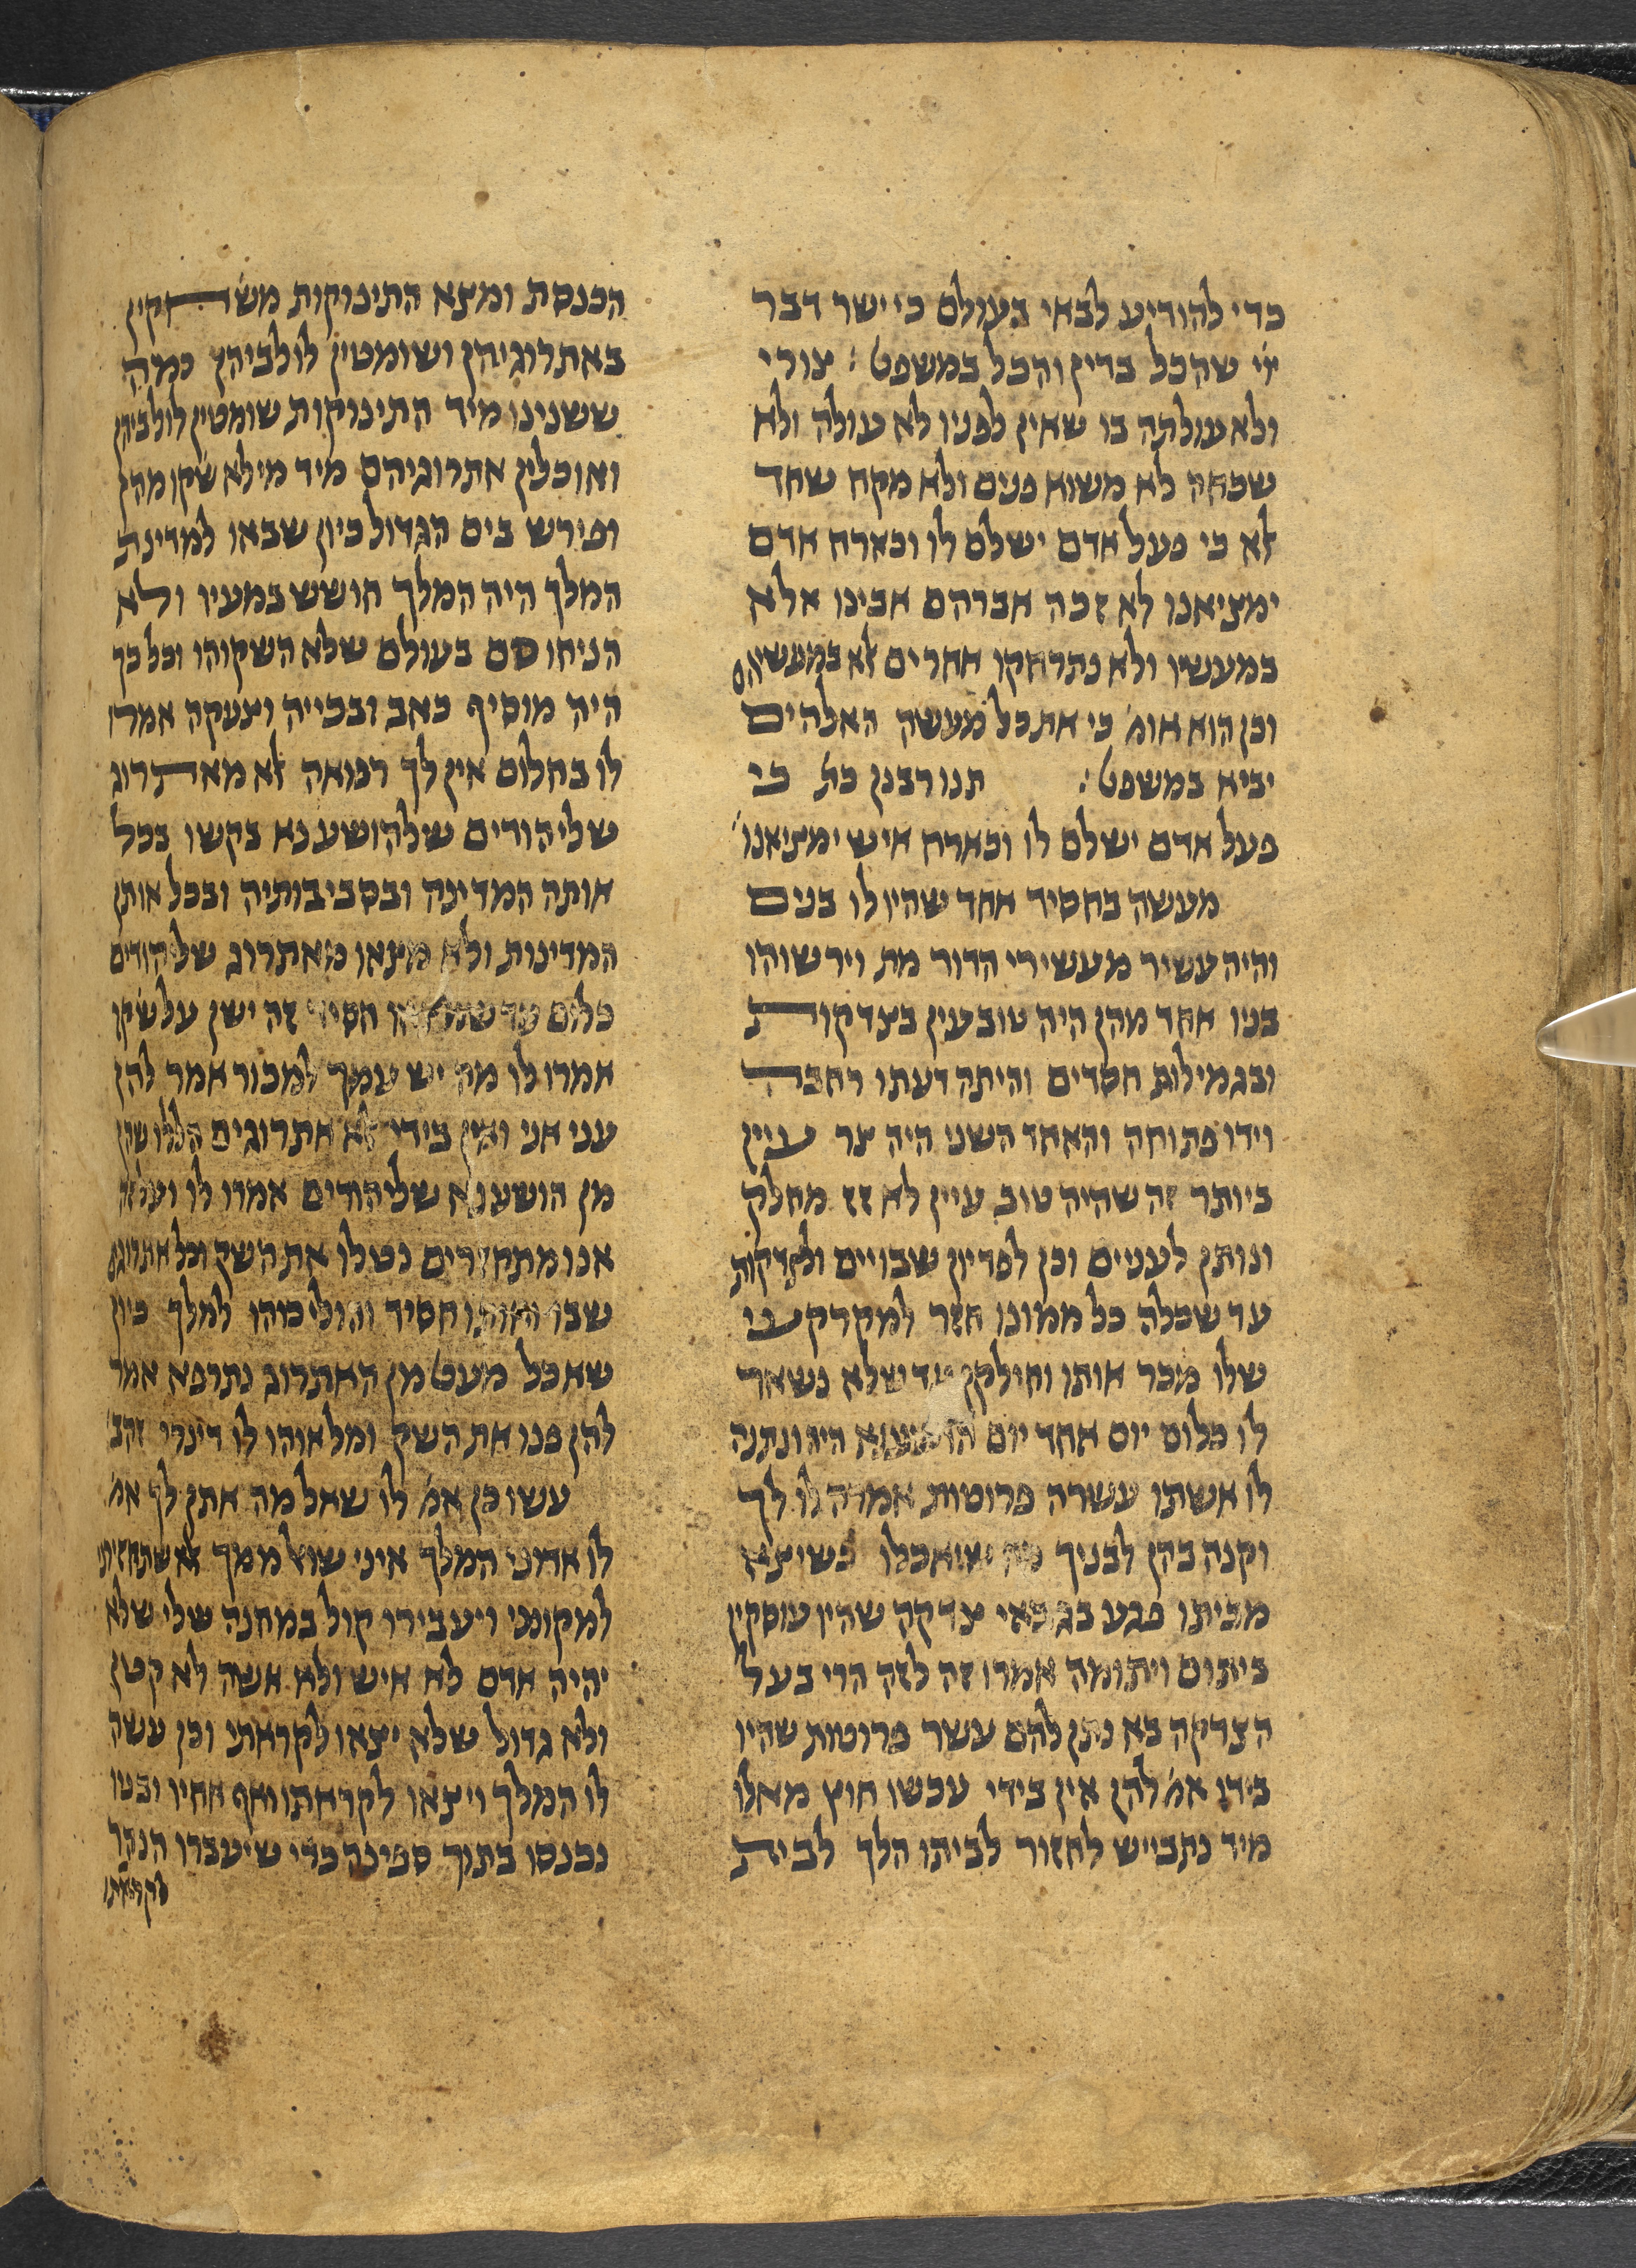 כדי להודיע לבאי בעולם כי ישר דבר
ייי שהכל בדין והכל במשפט : צורי
ולא עולתה בו שאין לפניו לא עולה ולא
שכחה לא משוא פנים ולא מקח שחד
אלא כי פעל אדם ישלם לו וכארח אדם
ימציאנו לא זכה אברהם אבינו אלא
במעשיו ולא נתרחקו אחרים אלא במעשיהם
וכן הוא אומ' כי את כל מעשה האלהים
יביא במשפט : תנו רבנן כת' כי
פעל אדם ישלם לו וכארח איש ימציאנו'
מעשה בחסיד אחד שהיו לו בנים
והיה עשיר מעשירי הדור מת וירשוהו
בניו אחד מהן היה טוב עין בצדקות
ובגמילות חסדים והיתה דעתו רחבה
וידו פתוחה והאחד השני היה צר עיין
ביותר זה שהיה טוב עיין לא זז מחלק
ונותן לעניים וכן לפדיון שבויים ולצדקות
עד שכלה כל ממונו חזר למקרקעי
שלו מכר אותן וחילקן עד שלא נשאר
לו כלום יום אחד יום הושענא היה ונתנה
לו אשתו עשרה פרוטות אמרה לו לך
וקנה בהן לבניך מה שיאכלו כשיצא
מביתו פגע בגבאי צדקה שהיו עוסקין
ביתום ויתומה אמרו זה לזה הרי בעל
הצדקה בא נתן להם עשר פרוטות שהיו
בידו אמ' להן אין בידי עכשו חוץ מאלו
מיד נתבייש לחזור לביתו הלך לבית
הכנסת ומצא התינוקות משחקין
באתרוגיהן ושומטין לולביהן כמה
ששנינו מיד התינוקות שומטין לולביהן
ואוכלין אתרוגיהם מיד מילא שקו מהן
ופירש בים הגדול כיון שבאו למדינת
המלך היה המלך חושש במעיו ולא
הניחו סם בעולם שלא השקוהו וכל כך
היה מוסיף כאב ובכייה וצעקה אמרו
לו בחלום אין לך רפואה אלא מאתרוג
שליהודים שלהושענא בקשו בכל
אותה המדינה ובסביבותיה ובכל אותן
המדינות ולא מצאו מאתרוג שליהודים
כלום עד שמצאו חסיד זה ישן על שקו
אמרו לו מה יש עמך למכור אמר להן
עני אני ואין בידי אלא אתרוגים הללו שהן
מן הושענא שליהודים אמרו לו ועל זה
אנו מתחזרים נטלו את השק וכל אתרוגים
שבו ואותו חסיד והוליכוהו למלך כיון
שאכל מעט מן האתרוג נתרפא אמר
להן פנו את השק ומלאוהו לו דינרי זהב
עשו כן אמ' לו שאל מה אתן לך אמ'
לו אדוני המלך איני שואל ממך אלא שתחזירני
למקומי ויעבירו קול במחנה שלי שלא
יהיה אדם לא איש ולא אשה לא קטן
ולא גדול שלא יצאו לקראתי וכן עשה
לו המלך ויצאו לקראתו ואף אחיו ובניו
נכנסו בתוך ספינה כדי שיעברו הנהר
לקראתו